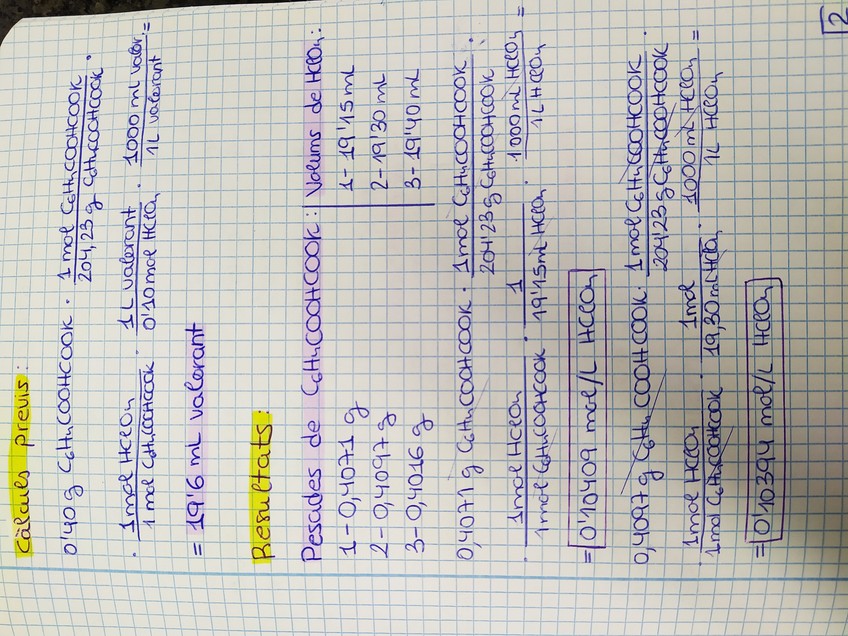 2
Càlculs previs:
0'40 g C₆H₄COOHCOOK · 1 mol C₆H₄COOHCOOK / 204,23 g C₆H₄COOHCOOK ·
· 1 mol HClO₄ / 1 mol C₆H₄COOHCOOK · 1 L valorant / 0'10 mol HClO₄ · 1000 ml valor. / 1 L valorant =
= 19'6 mL valorant
Resultats:
Pesades de C₆H₄COOHCOOK: Volums de HClO₄:
1 - 0,4071 g 1 - 19'15 mL
2 - 0,4097 g 2 - 19'30 mL
3 - 0,4016 g 3 - 19'40 mL
0,4071 g C₆H₄COOHCOOK · 1 mol C₆H₄COOHCOOK / 204'23 g C₆H₄COOHCOOK ·
· 1 mol HClO₄ / 1 mol C₆H₄COOHCOOK · 1 / 19'15 ml HClO₄ · 1000 ml HClO₄ / 1 L HClO₄ =
= 0'10409 mol/L HClO₄
0,4097 g C₆H₄COOHCOOK · 1 mol C₆H₄COOHCOOK / 204,23 g C₆H₄COOHCOOK ·
· 1 mol HClO₄ / 1 mol C₆H₄COOHCOOK · 1 mol / 19,30 mL HClO₄ · 1000 ml HClO₄ / 1 L HClO₄ =
= 0'10394 mol/L HClO₄